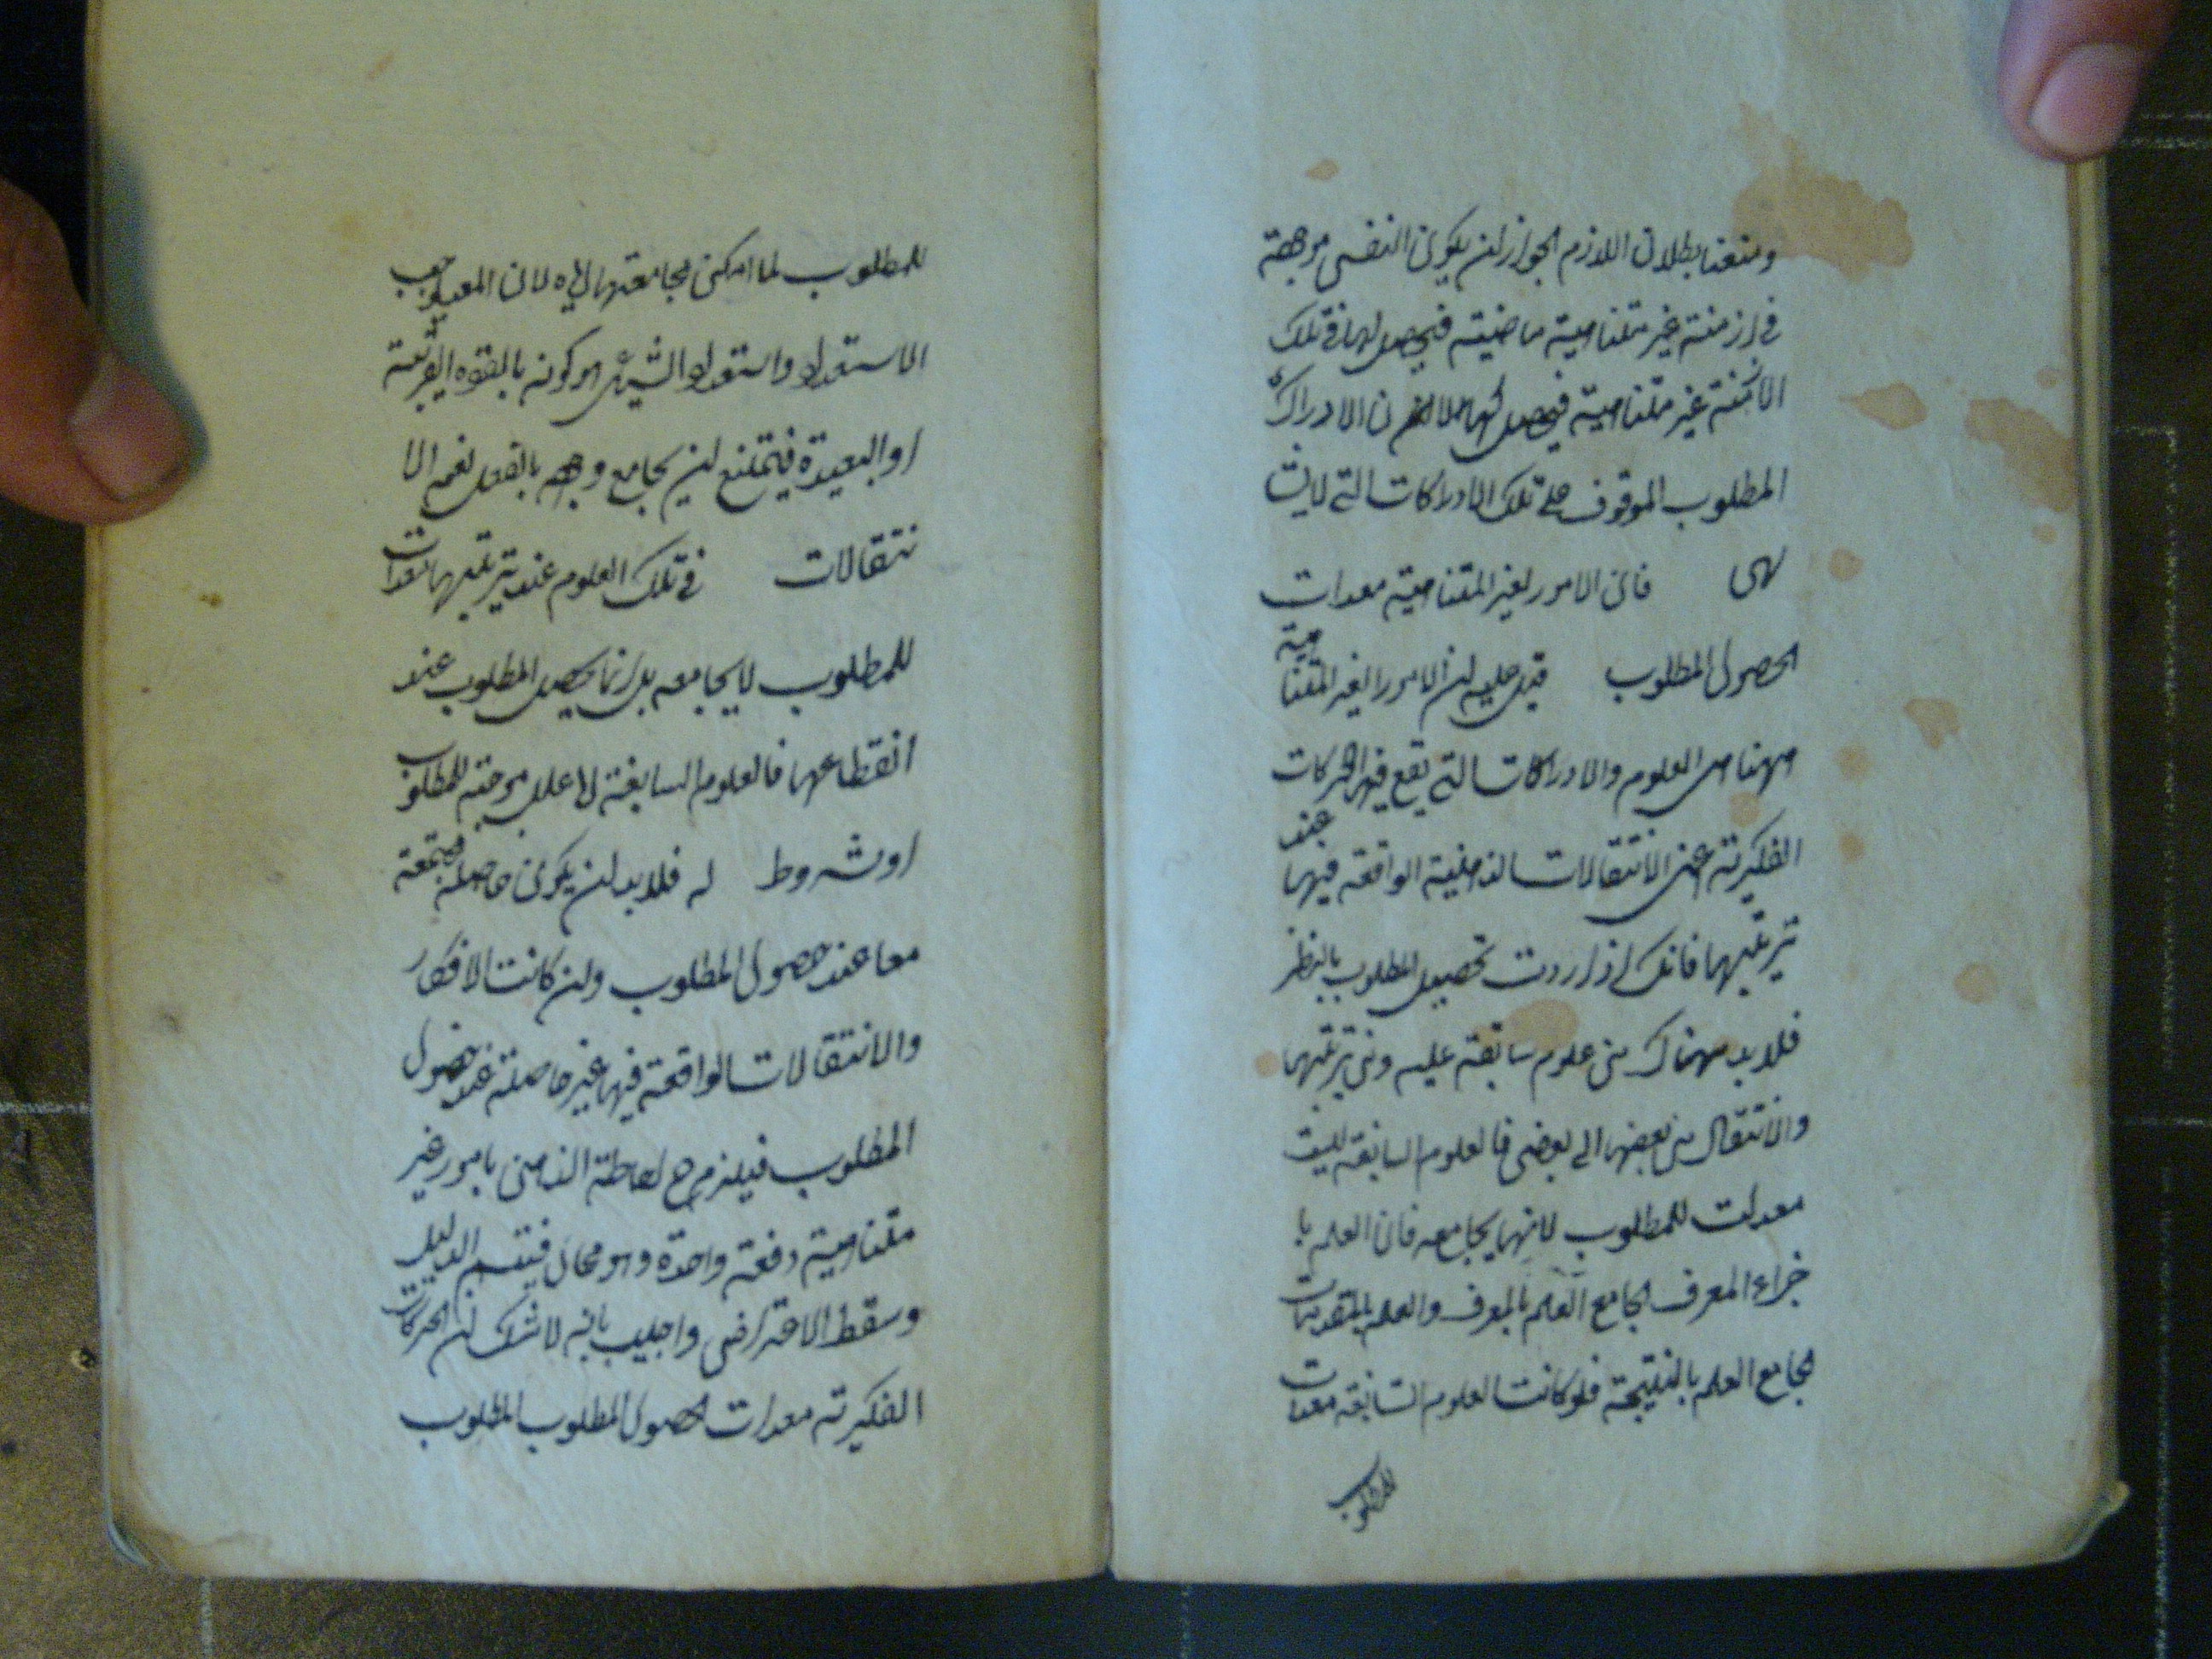 ومنعنا بطلان اللازم لجواز ان يكون النفس موجهة
في ازمنة غير متناهية ماضية فيحصل لها في تلك
الازمنة غير متناهية فيحصل لها الان الادراك
المطلوب الموقوف على تلك الادراكات التي لايت
لهى فان الامور لغير المتناهية معدات
لحصول المطلوب قيل عليه ان الامور الغير المتناهية
ههنا هى العلوم والادراكات التي يقع فيها الحركات
الفكرية اعنى الانتقالات الذهنية الواقعة فيها عند
ترتيبها فانك اذا اردت تحصيل المطلوب بالنظر
فلابد هناك من علوم سابقة عليه ومن ترتيبها
والانتقال من بعضها الى بعض فالعلوم السابقة ليست
معدات للمطلوب لانها يجامعه فان العلم با
جزاء المعرف يجامع العلم بالمعرف والعلم بالمقدمات
يجامع العلم بالنتيجة فلو كانت العلوم السابقة معدات
للمطلوب
للمطلوب لما امكن مجامعتها اياه لان المعد يوجب
الاستعداد واستعداد الشيئ هو كونه بالقوه القريبة
او البعيدة فيمتنع ان يجامع وجوده بالفعل نعم الا
نتقالات في تلك العلوم عند ترتيبها معدات
للمطلوب لا يجامعه بل انما يحصل المطلوب عند
انقطاعها فالعلوم السابقة اما علل موجبة للمطلوب
او شروط له فلابد ان يكون حاصلة مجتمعة
معا عند حصول المطلوب وان كانت الافكار
والانتقالات الواقعة فيها غير حاصلة عند حصول
المطلوب فيلزم ح احاطة الذهن بامور غير
متناهية دفعة واحدة وهو محال فيتم الدليل
وسقط الاعتراض واجيب بانه لا شك ان الحركات
الفكرية معدات لحصول المطلوب المطلوب